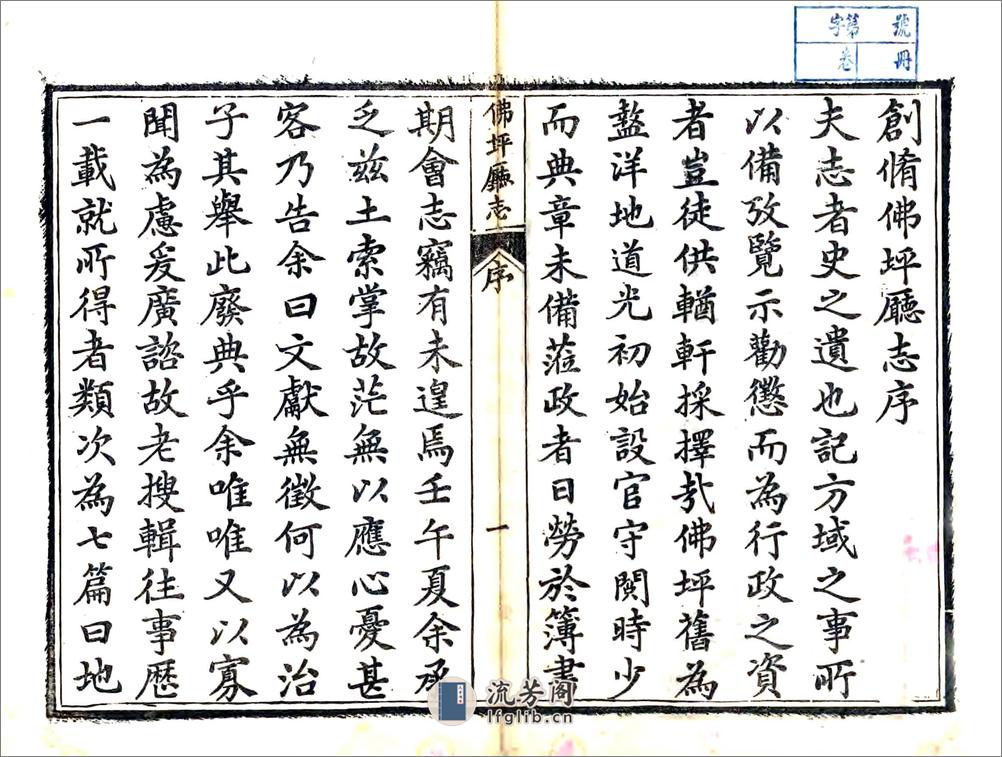 號第字
冊卷
創脩佛坪廳志序
夫志者史之遺也記方域之事所
以備攷覽示勸懲而為行政之資
者豈徒供輶軒採擇㢤佛坪舊為
盩洋地道光初始設官守閱時少
而典章未備蒞政者日勞於簿書
佛坪廳志
序
一
期會志竊有未遑焉壬午夏余承
乏兹土索掌故茫無以應心憂甚
客乃告余曰文獻無徵何以為治
子其舉此廢典乎余唯唯又以寡
聞為慮爰廣諮故老搜輯往事歷
一載就所得者類次為七篇曰地
流芳阁
lfglib.cn